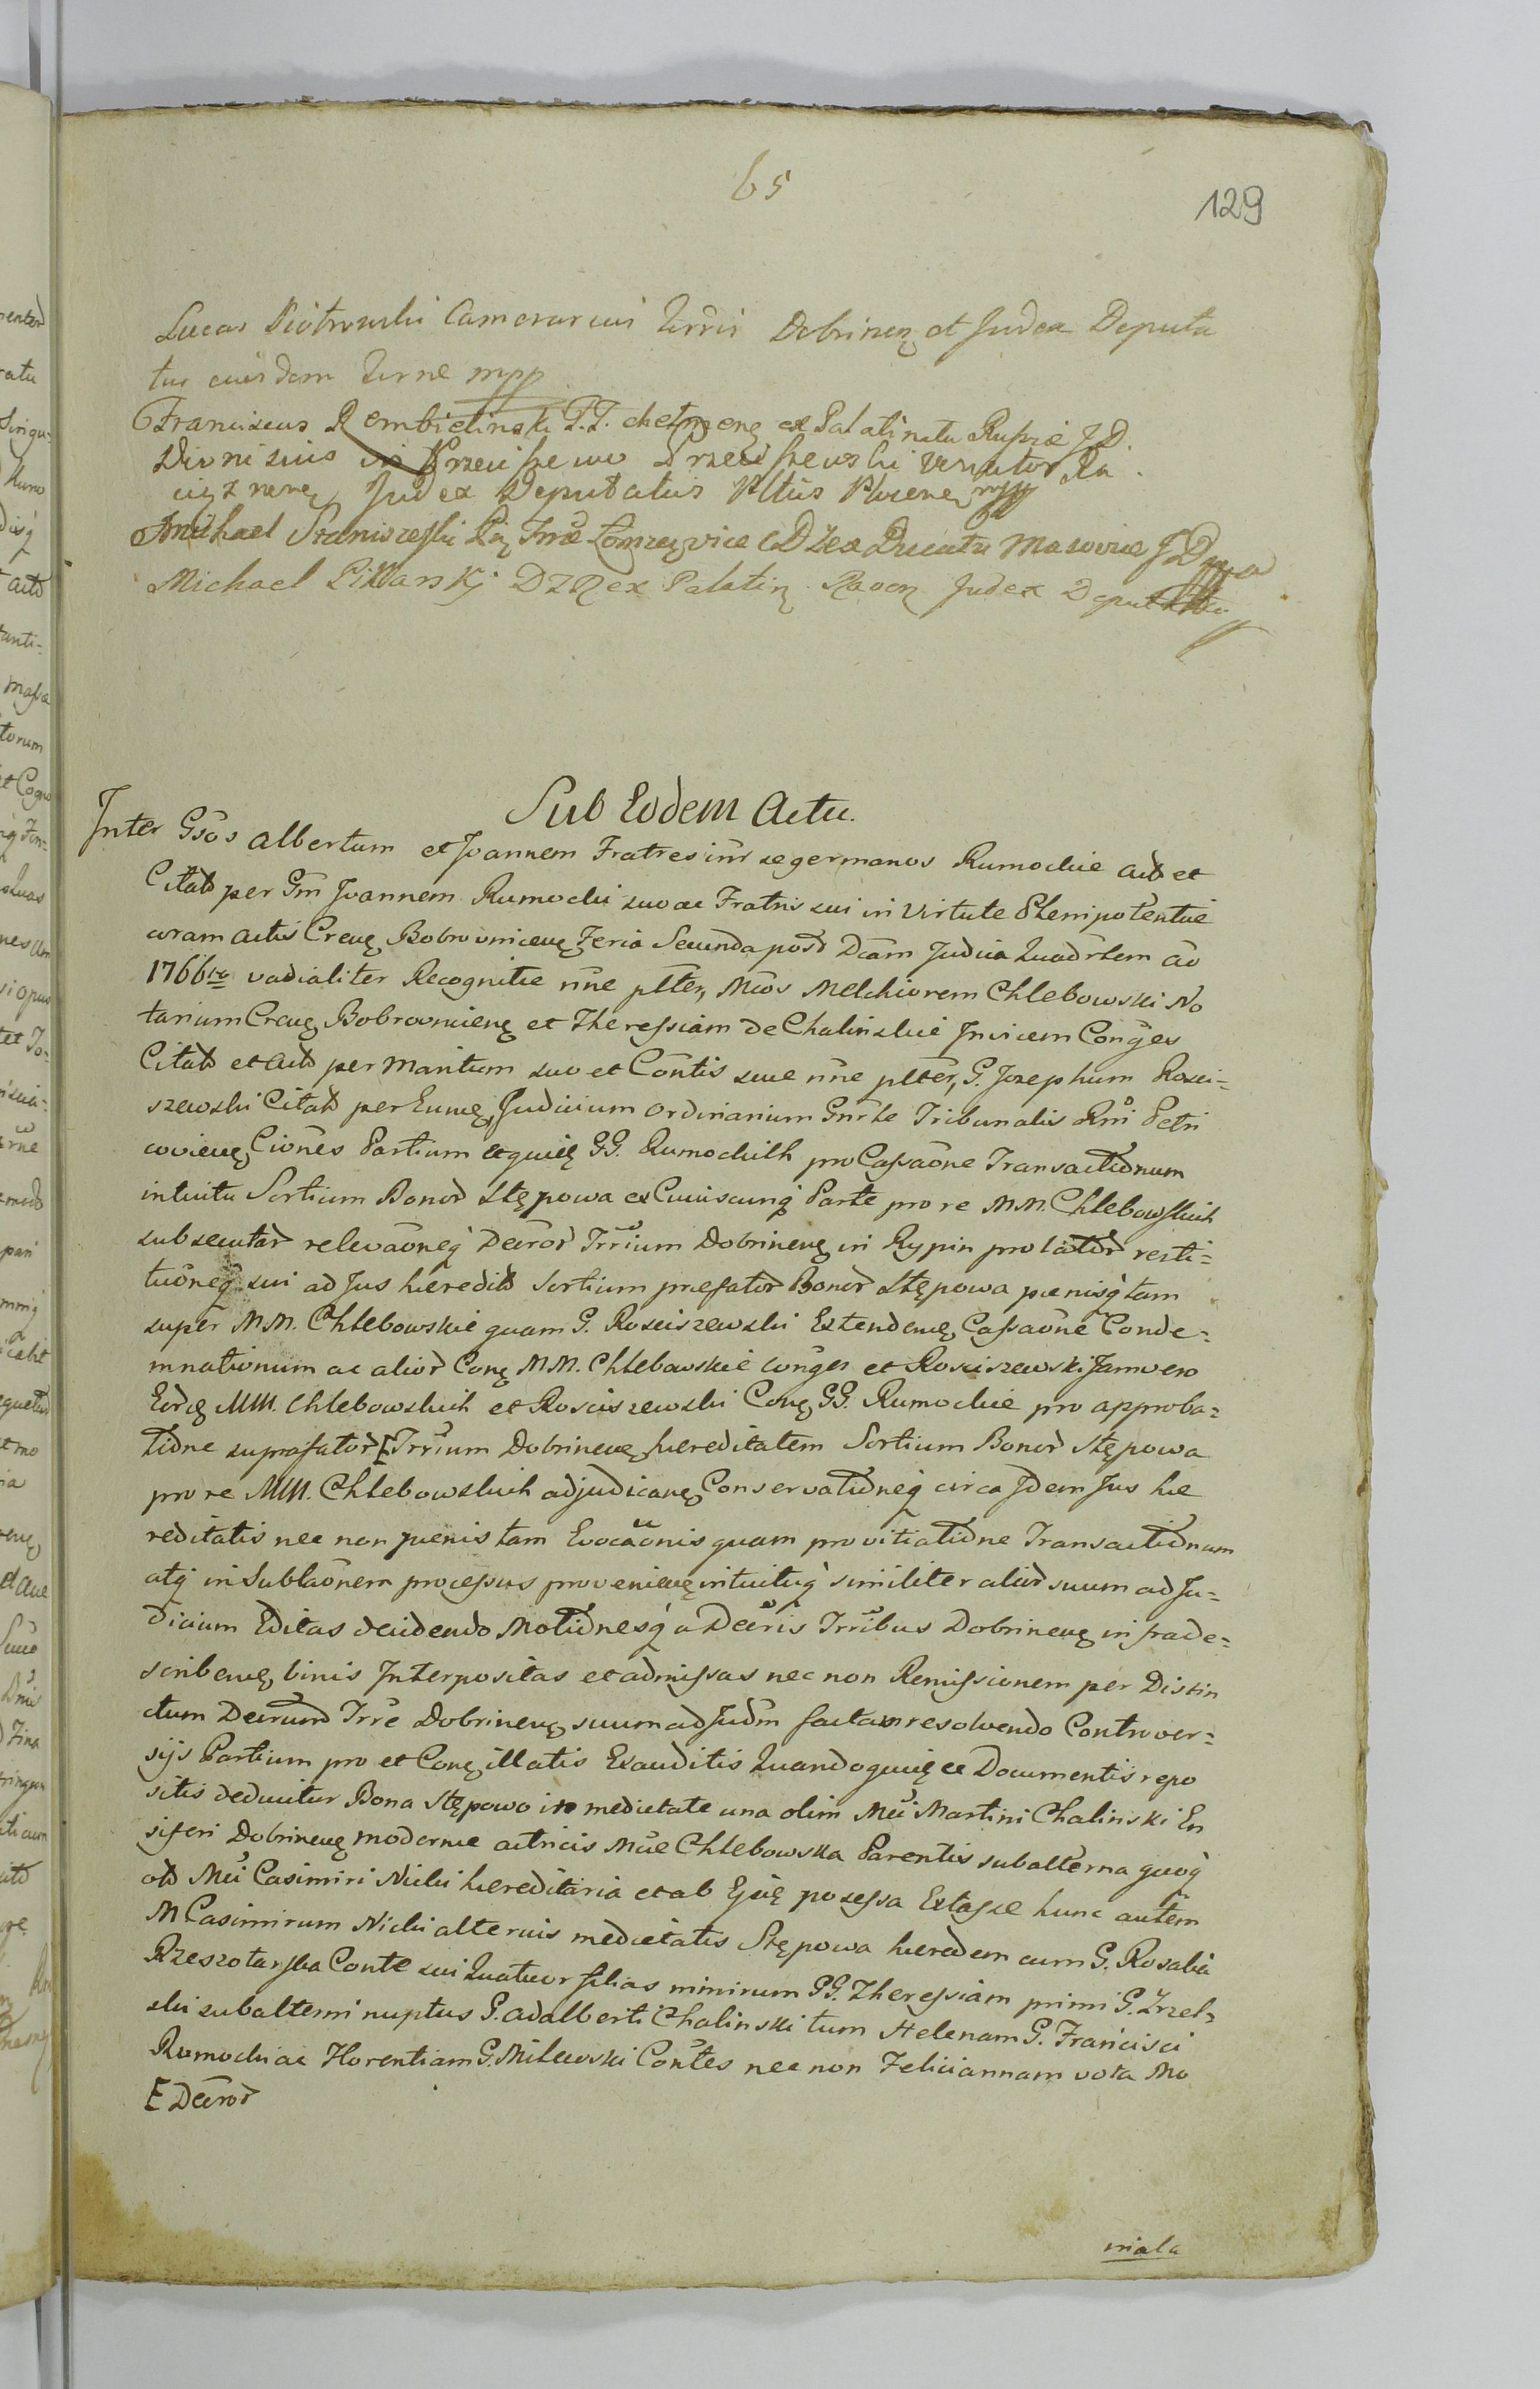 65
129
Lucas Piotrowski Camerarius Terrae Dobrinen et Judex Deputa
tus eiusdem Terrae mpp
Franciscus Rembielinski P.T. chełmen ex Palatinatu Russiae J.D.
Dionisius in Krzewszewo Krzewszewski Venator Ra
ciązneneę Judex Deputatus Pltus Plocenę mpp
Michael Staniszewski Łomzeę vice ex Ducatu Masoviae JD
Michael Piwarskj DZR ex Palatinę Raven Judex Deputatus
Sub Eodem Actu.
Inter Gsos Albertum et Joannem Fratres inr se germanos Rumockie act et
Citat per Gm Joannem Rumocki suo ac Fratris sui in Virtute Plenipotentiae
coram actis Creneę Bobrovniceneę Feria Secunda post Dcam Judica Quadrlem ao
1766to vadialiter Recognitae nne plter, Mcos Melchiorem Chlebowski No
tarium Creneę Bobrovniceneę et Theressiam de Chalinskie Invicem Conges
Citat et act per Maritum suo et Contis suae nne plter, G. Josephum Rosci=
szewski Citat per Eumę Judicium Ordinarium Gnrle Tribunalis Rni Petri
covieneę Ciones Partium atquię GG. Rumockich pro Cassaone Transactionum
intuitu Sortium Bonor Stępowa ex Cuiuscunq Parte pro re MM. Chlebowskich
subsecutar relevaoneq Decror Trrium Dobrineneę in Rypin prolator resti=
tuoneq sui ad Jus haeredit Sortium praefator Bonor Stępowa paenisq tam
super MM. Chlebowskie quam G. Rosciszewski Extendeneę Cassaone Conde=
mnationum ac alior Conę MM. Chlebowskie conges et Rosciszewski Jamvero
Eordę MM. Chlebowskich et Rosciszewski Conę GG. Rumockie pro approba=
tione suprafator [ Trrium Dobrineneę haereditatem Sortium Bonor Stępowa
pro re MM. Chlebowskich adjudicaneę Conservationeq circa Jdem Jus hae
reditatis nec non paenis tam Evocaonis quam pro vitiatione Transactionum
atq in Sublaonem processus provenieneę intuituq similiter alior suum ad Ju=
dicium Editas decidendo Motionesq a Decris Trribus Dobrineneę infrade=
scribeneę, binis Interpositas et admissas nec non Remissionem per Distin
ctum Decrum Trre Dobrineneę suum ad Judm factam resolvendo Controver=
sijs Partium pro et Conę illatis Exauditis Quandoquię ex Documentis repo
sitis deducitur Bona Stępowo in medietate una olim Mci Martini Chalinski En
siferi Dobrineneę modernae actricis Mcae Chlebowska Parentis subalterna quoq
olt Mci Casimiri Nicki haereditaria et ab Ejsię possessa Extasse hunc autem
M Casimirum Nicki alterius medietatis Stępowa haeredem cum G. Rosalia
Rzeszotarska Conte sui Quatuor filias nimirum GG. Theressiam primi G. Trzel=
ski subalterni nuptus G. Adalberti Chalinski tum Helenam G. Francisci
Rumocki ac Florentiam G. Milewski Contes nec non Feliciannam vota Mo
[ Decror
niala